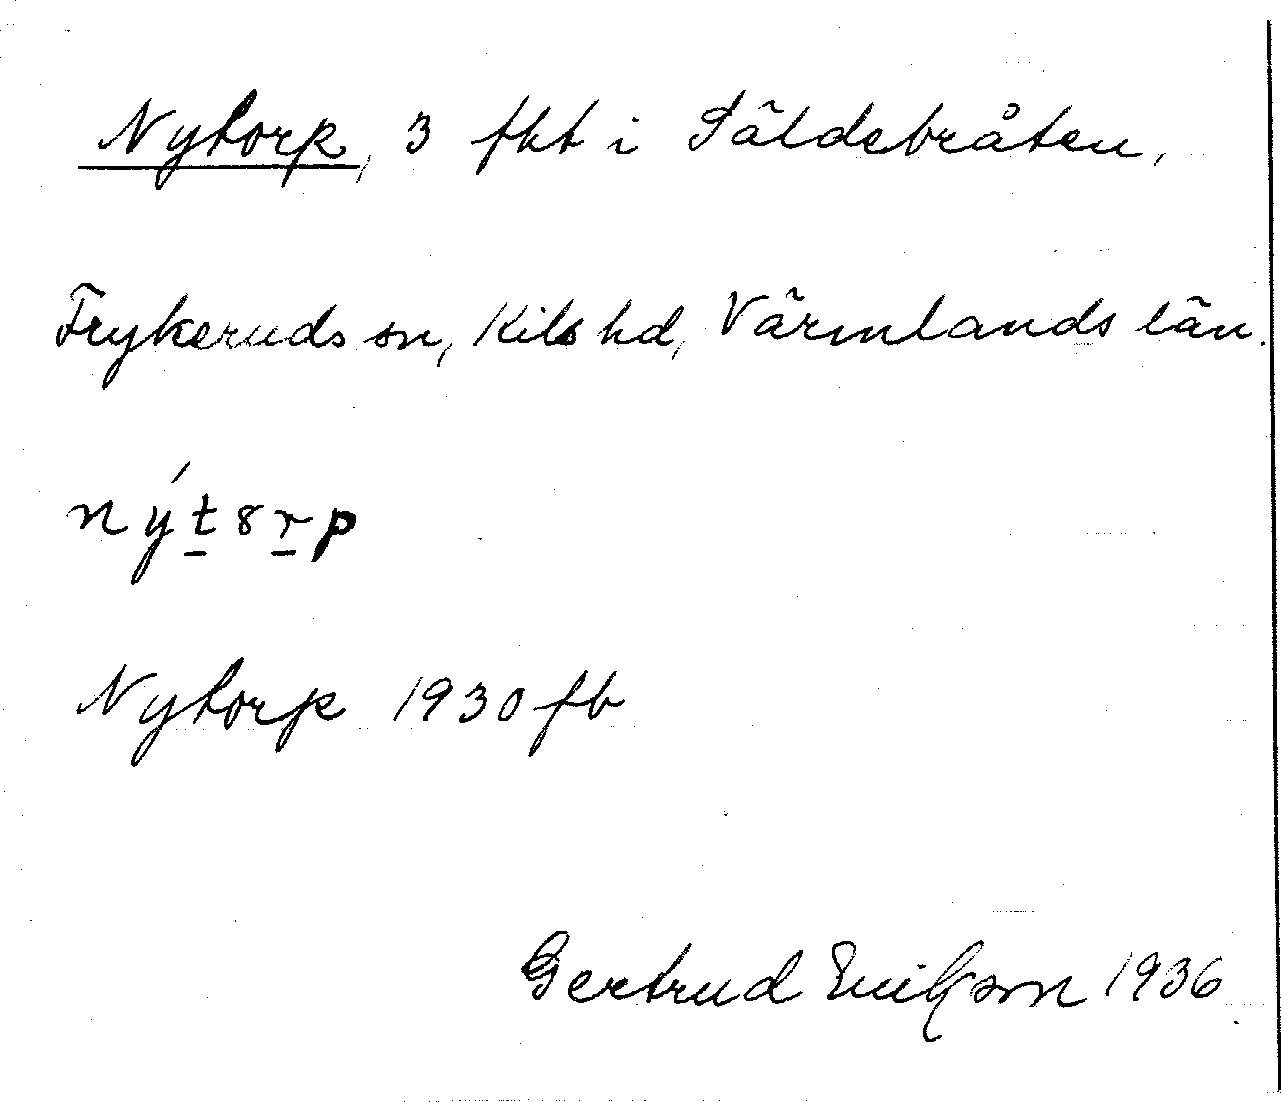 Nytorp, 3 fkt i Säldebråten,
Frykeruds sn, Kils hd, Värmlands län.
nýt8rp
Nytorp 1930 fb
Gertrud Erikson 1936